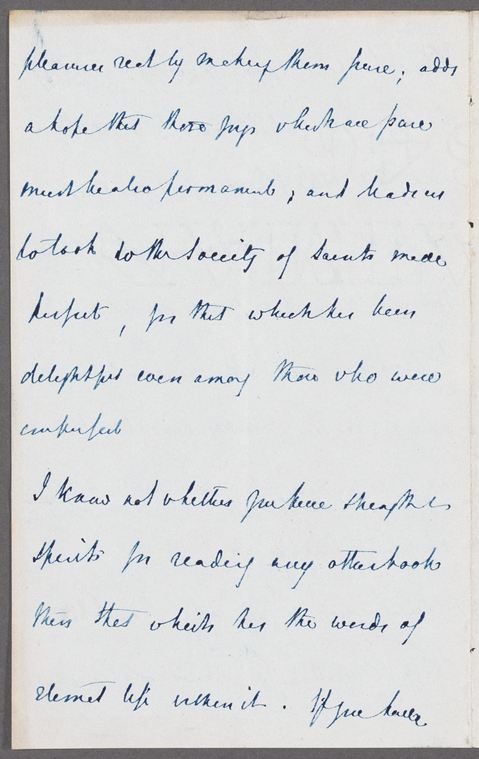 pleasures rest by making them pure; adds
a hope that those joys which are pure
must be also permanent; and leads us
to look to the Society of Saints made
perfect, for that which has been
delightful even among those who were
imperfect
I know not whether you have strength &
spirits for reading any other book
than that which has the words of
eternal life within it. If you have